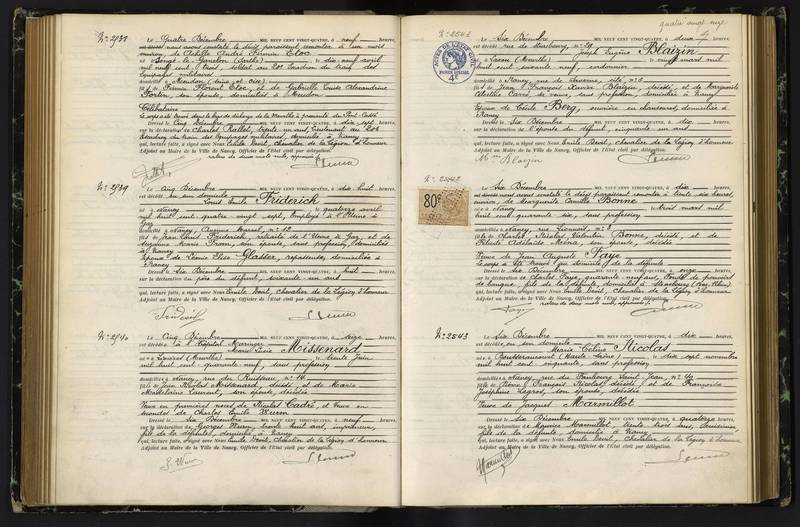 N° 2938 Le Quatre Décembre MIL NEUF CENT VINGT-QUATRE, à neuf heures,
nous avons constaté le décès paraissant remonter à un mois
environ, de Achille André Firmin Eloc
le dix-neuf avril
mil neuf cent trois, soldat au 20e Escadron du train des
Équipages militaires
domicilié à Meudon (Seine et Oise)
fils de Firmin Florent Eloc, et de Gabrielle Louise Alexandrine
Fortin, son épouse, domiciliés à Meudon
Célibataire
Dressé le Cinq Décembre MIL NEUF CENT VINGT-QUATRE, à dix sept heures,
sur la déclaration de Charles Rallet, trente un ans, Lieutenant au 20e
Escadron du train des Équipages militaires, domicilié à Nancy
qui, lecture faite, a signé avec Nous Émile Devit, Chevalier de la Légion d'honneur
Adjoint au Maire de la Ville de Nancy, Officier de l'Etat civil par délégation.
N° 2939 Le Cinq Décembre MIL NEUF CENT VINGT-QUATRE, à dix huit heures,
est décédé en son domicile
Louis Emile Friderich
né à Nancy le quatorze avril
mil huit cent quatre-vingt sept, Employé à l'Usine à
Gaz
domicilié à Nancy, Avenue Marcel, n° 12
fils de Jean Louis Friderich, retraité de l'Usine à Gaz, et de
son épouse, sans profession, domiciliés
à Nancy
Époux de Léonie Elise Glasser, repasseuse, domiciliée à
Nancy
Dressé le Six Décembre MIL NEUF CENT VINGT-QUATRE, à huit heures,
sur la déclaration du père du défunt, soixante un ans
qui, lecture faite, a signé avec Nous Émile Devit, Chevalier de la Légion d'honneur
Adjoint au Maire de la Ville de Nancy, Officier de l'Etat civil par délégation.
N° 2940 Le Cinq Décembre MIL NEUF CENT VINGT-QUATRE, à seize heures,
est décédée à l'Hôpital Maringer
Marie Lucie Missenard
née à (Meurthe) le trente Juin
mil huit cent quarante-neuf, sans profession
domiciliée à Nancy, rue du Ruisseau, n° 14
fille de Jean Nicolas Missenard, décédé, et de Marie
Madeleine Laurent, son épouse, décédée
Veuve en premières noces de Nicolas Cadré, et Veuve en
secondes de Charles Emile Wurm
Dressé le Six Décembre MIL NEUF CENT VINGT-QUATRE, à neuf heures,
sur la déclaration de Georges Wurm, trente huit ans, imprimeur,
fils de la défunte, domicilié à Nancy
qui, lecture faite, a signé avec Nous Émile Devit, Chevalier de la Légion d'honneur
Adjoint au Maire de la Ville de Nancy, Officier de l'Etat civil par délégation.
G. Wurm
quatre vingt onze
N° 2541 Le Six Décembre MIL NEUF CENT VINGT-QUATRE, à deux heures,
est décédé rue de Strasbourg, n° 29
Joseph Eugène Blaizin
né à (Meurthe) le vingt mars mil
huit cent soixante neuf, cordonnier
domicilié à Nancy, rue de cité, n° 5
fils de Jean François Xavier Blaizin, décédé, et de Marguerite
sans profession, domiciliée à Nancy
Époux de Cécile Berg, ouvrière en chaussures, domiciliée à
Nancy
Dressé le Six Décembre MIL NEUF CENT VINGT-QUATRE, à dix heures,
sur la déclaration de l'épouse du défunt, cinquante un ans
qui, lecture faite, a signé avec Nous Émile Devit, Chevalier de la Légion d'honneur
Adjoint au Maire de la Ville de Nancy, Officier de l'Etat civil par délégation.
Mme Blaizin
ACTES DE L'ETAT CIVIL
PAPIER SPECIAL
4F
80c
N° 2542 Le Six Décembre MIL NEUF CENT VINGT-QUATRE, à dix heures,
nous avons constaté le décès paraissant remonter à trente six heures
environ, de Marguerite Camille Bonne
née à Nancy le trois mars mil
huit cent quarante six, sans profession
domiciliée à Nancy, rue Lionnois, n° 8
fille de Charles Nicolas Valentin Bonne, décédé, et de
Félicité Adélaïde son épouse, décédée
Veuve de Jean Auguste Faye
Le corps a été trouvé au domicile de la défunte
Dressé le Six Décembre MIL NEUF CENT VINGT-QUATRE, à onze heures,
sur la déclaration de Charles Faye, quarante neuf ans, Fondé de pouvoirs
de banque, fils de la défunte, domicilié à Strasbourg (Bas-Rhin)
qui, lecture faite, a signé avec Nous Émile Devit, Chevalier de la Légion d'honneur
Adjoint au Maire de la Ville de Nancy, Officier de l'Etat civil par délégation.
Faye
N° 2543 Le Six Décembre MIL NEUF CENT VINGT-QUATRE, à dix heures,
est décédée en son domicile
Marie Céline Nicolas
née à Bousseraucourt (Haute Saône) le dix sept novembre
mil huit cent cinquante, sans profession
domiciliée à Nancy, rue du Faubourg Saint Jean, n°
fille de François Nicolas, décédé, et de Françoise
Joséphine Legros, son épouse, décédée
Veuve de Jacques Marmillot
Dressé le Six Décembre MIL NEUF CENT VINGT-QUATRE, à quatorze heures,
sur la déclaration de Maurice Marmillot, trente trois ans,
fils de la défunte, domicilié à Nancy
qui, lecture faite, a signé avec Nous Émile Devit, Chevalier de la Légion d'honneur
Adjoint au Maire de la Ville de Nancy, Officier de l'Etat civil par délégation.
Marmillot